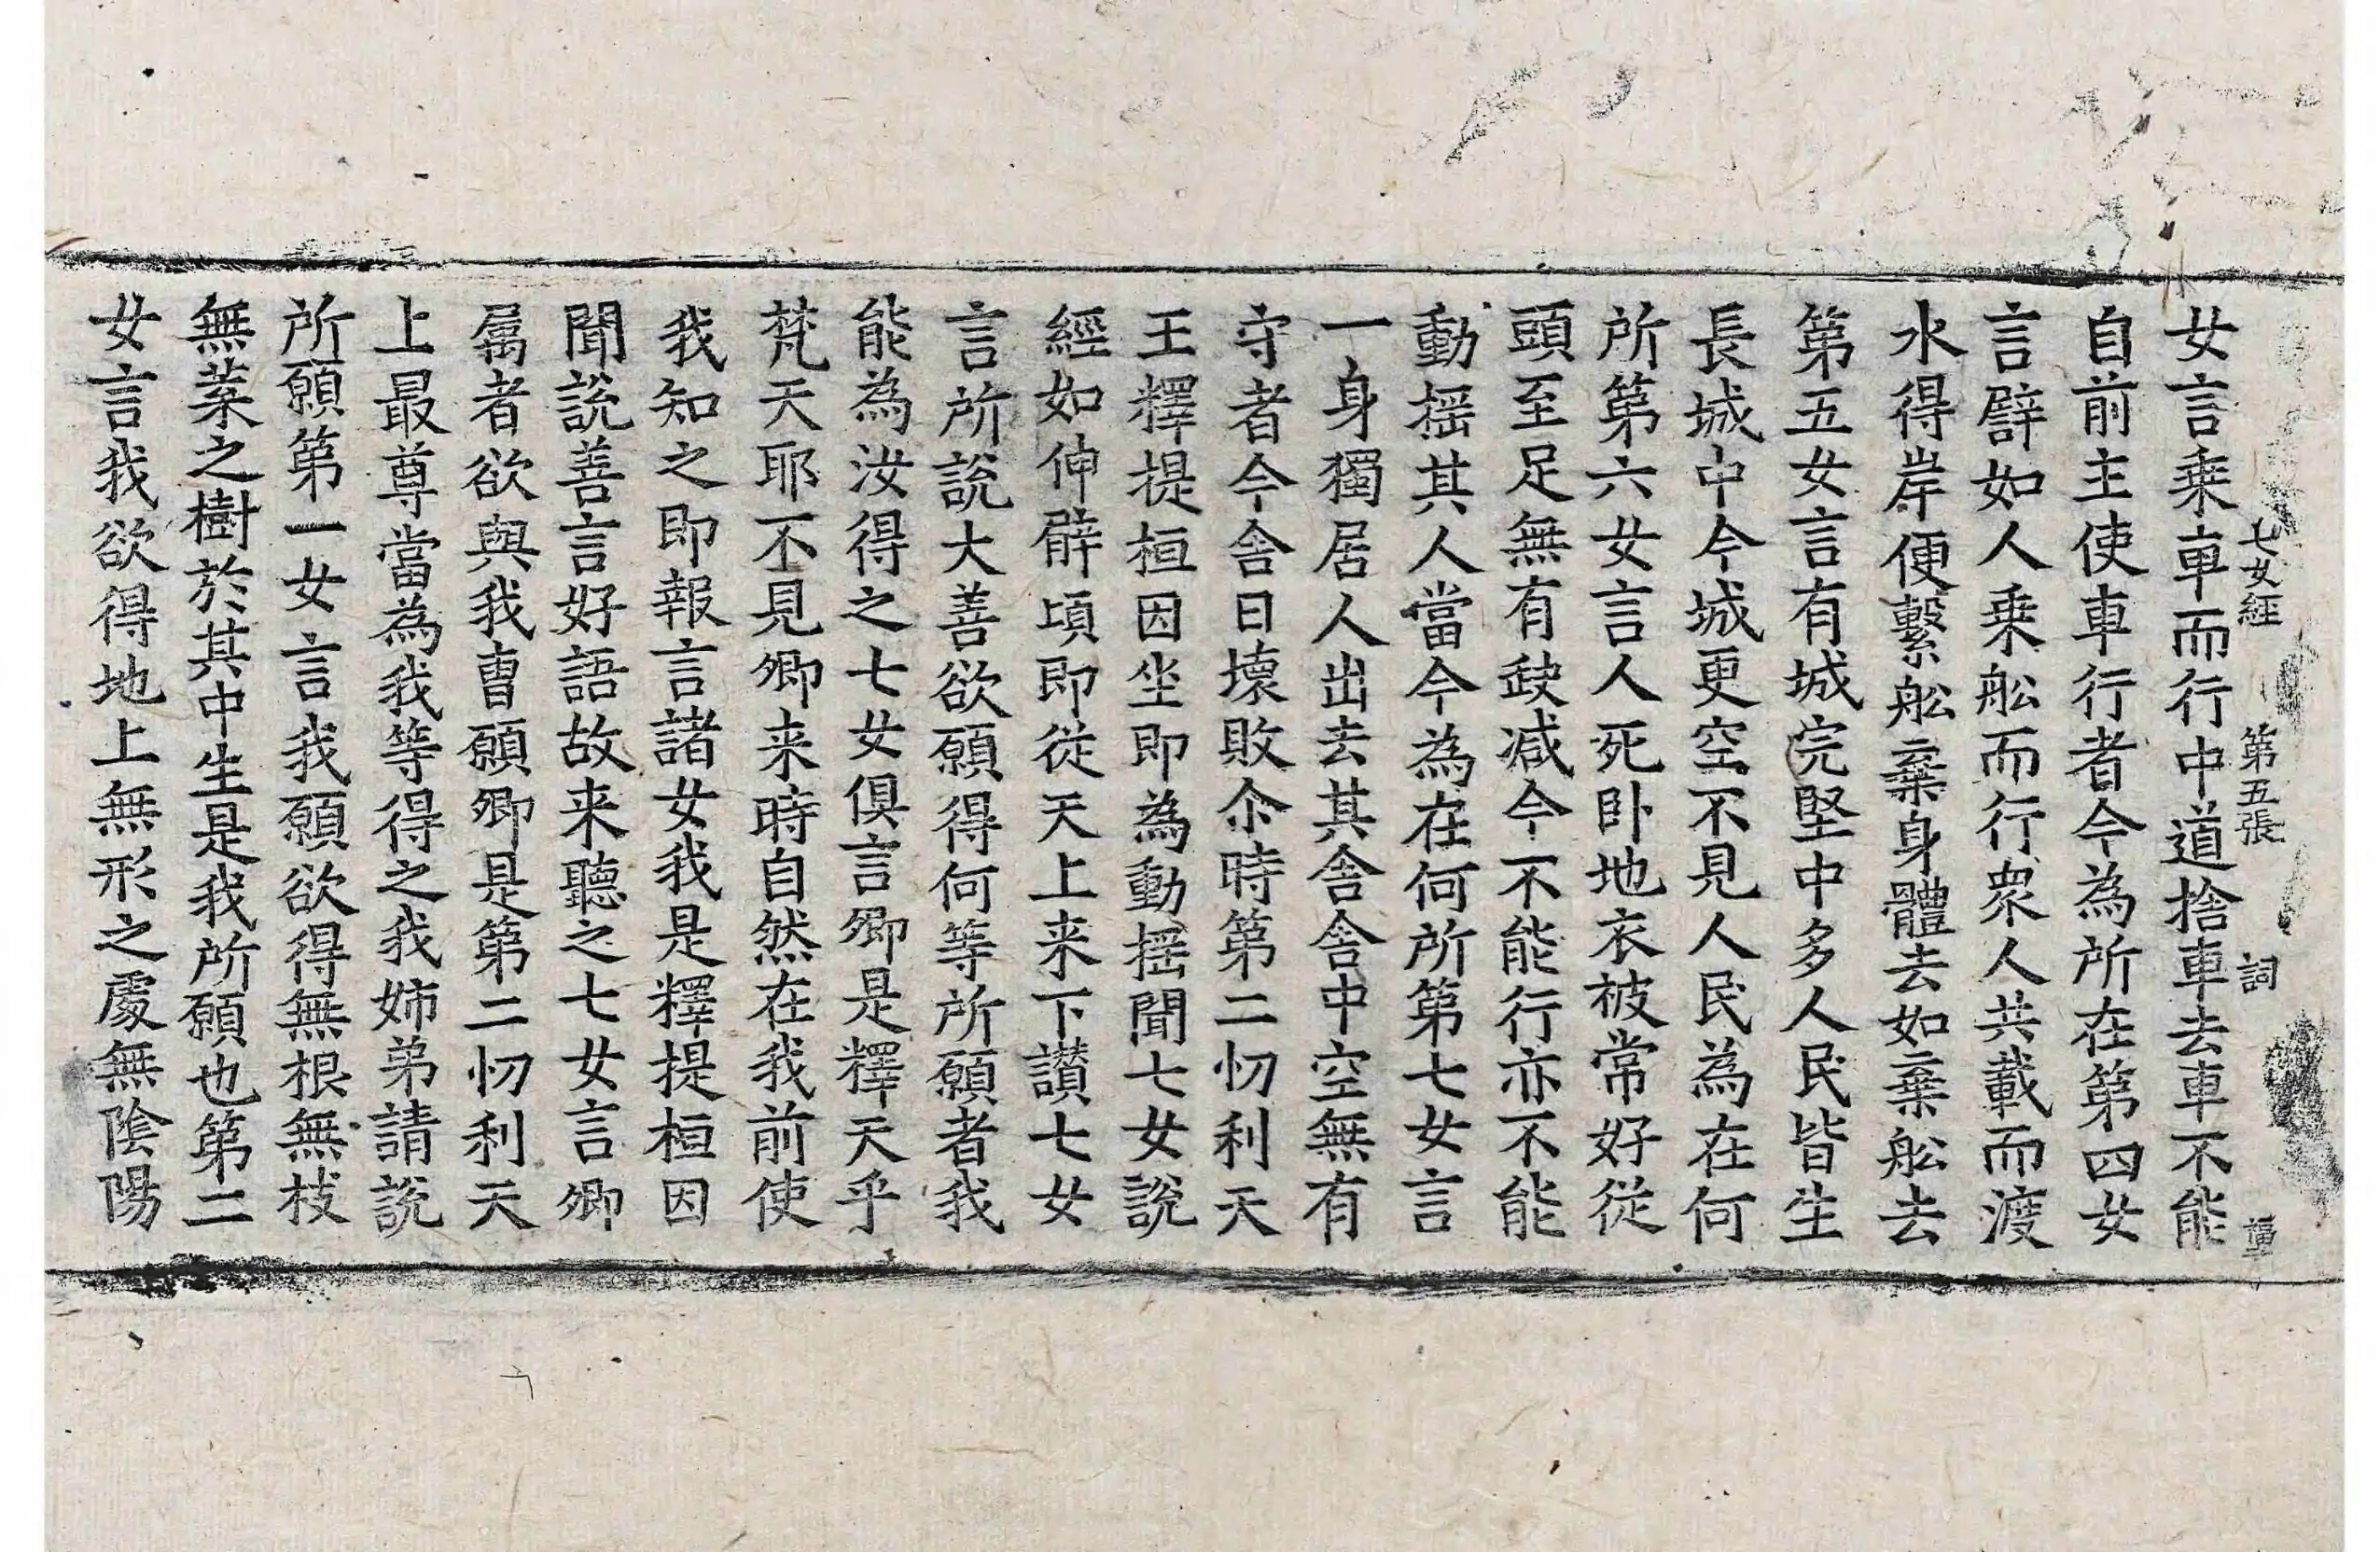 七女經 第五張 詞
女言乘車而行中道捨車去車不能
自前主使車行者今為所在第四女
言譬如人乘舩而行衆人共載而渡
水得岸便繫舩棄身體去如棄舩去
第五女言有城完堅中多人民皆生
長城中今城更空不見人民為在何
所第六女言人死卧地衣被常好從
頭至足無有缺减今不能行亦不能
動揺其人當今為在何所第七女言
一身獨居人出去其舍舍中空無有
守者今舍日壞敗尒時第二忉利天
王釋提桓因坐即為動揺聞七女說
經如伸臂頃即從天上来下讃七女
言所說大善欲願得何等所願者我
能為汝得之七女俱言卿是釋天乎
梵天耶不見卿来時自然在我前使
我知之即報言諸女我是釋提桓因
聞說善言好語故来聽之七女言卿
属者欲與我曺願卿是第二忉利天
上最尊當為我等得之我姉弟請說
所願第一女言我願欲得無根無枝
無葉之樹於其中生是我所願也第二
女言我欲得地上無形之處無陰陽